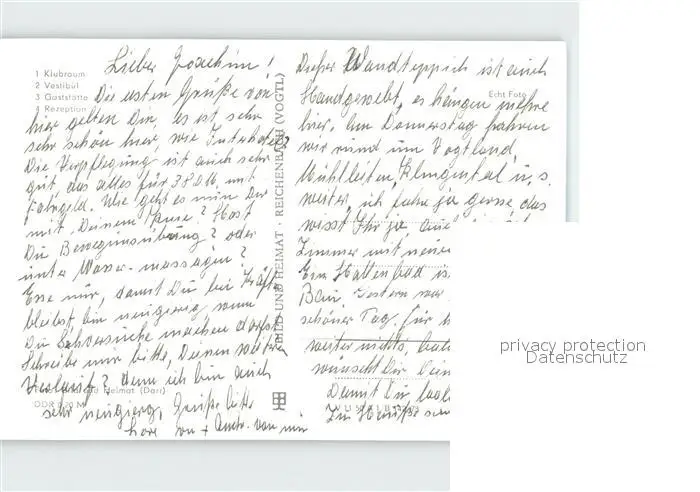 Lieber Joachim!
1 Klubraum
2 Vestibül
3 Gaststätte
4 Rezeption
Die ersten Grüße von
hier gelten Dir, es ist sehr
sehr schön hier, wie Interhotel
Die Verpflegung ist auch sehr
gut, das alles für 380 M. mit
Fahrgeld. Wie geht es nun Dir
mit Deinem Knie? Hast
Du Bewegungsübung? oder
unter Wasser-massagen?
Esse nur, damit Du bei Kräften
bleibst bin neugierig wann
Du Gehversuche machen darfst
Schreibe mir bitte, Deinen weiteren
Verlauf? denn ich bin auch
und Heimat (Darr)
DDR 0,20 M
sehr neugierig, Grüße bitte
Lore von mir
BILD UND HEIMAT · REICHENBACH (VOGTL)
Echt Foto
Dieser Wandteppich ist auch
Handgewebt, es hängen mehre
hier. Am Donnerstag fahren
wir rund um Vogtland,
Mühlleiten, Klingental u.s.
weiter, ich fahre ja gerne, das
wisst Ihr ja, auch
Zimmer mit
Ein Hallenbad is
Bau, Gestern war
schöner Tag, für h
weiter nichts,
wünscht Dir
Damit Du bald
zu Hause
privacy protection
Datenschutz